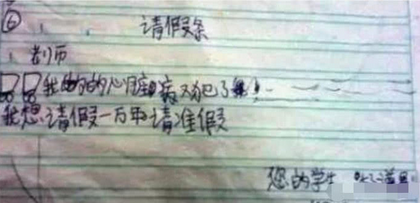 ⑥ 请假条
老师
我的的心脏病又犯了
我想请假一万年请准假
您的学生